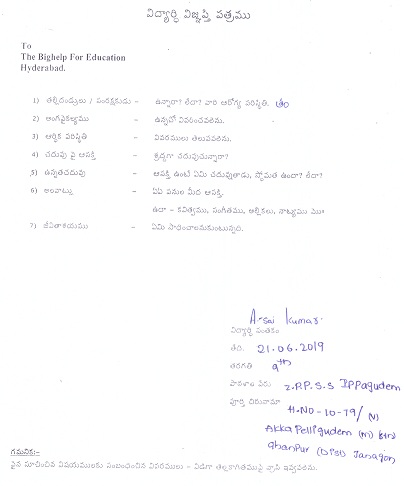 విద్యార్థి విజ్ఞప్తి పత్రము
To
The Bighelp For Education
Hyderabad.
1) తల్లిదండ్రులు / సంరక్షకుడు – ఉన్నారా? లేదా? వారి ఆరోగ్య పరిస్థితి.
2) అంగవైకల్యము – ఉన్నచో వివరించవలెను.
3) ఆర్థిక పరిస్థితి – వివరములు తెలుపవలెను.
4) చదువు పై ఆసక్తి – శ్రద్ధగా చదువుచున్నారా?
5) ఉన్నతచదువు – ఆసక్తి ఉంటే ఏమి చదువుతాడు, స్తోమత ఉందా? లేదా?
6) అలవాట్లు – ఏఏ పనుల మీద ఆసక్తి.
ఉదా – కవిత్వము, సంగీతము, ఆటలు, నాట్యము మొ॥
7) జీవితాశయము – ఏమి సాధించాలనుకుంటున్నది.
A. sai kumar
విద్యార్థి సంతకం
తేది. 21.06.2019
తరగతి 9th
పాఠశాల పేరు Z.P.P.S.S IPPagudem
పూర్తి చిరునామా
H.NO-10-79/
Akkapelligudem (M)
ghanpur (Dist) Janagon
గమనిక:-
పైన సూచించిన విషయములకు సంబంధించిన వివరములు – విడిగా తెల్లకాగితముపై వ్రాసి ఇవ్వవలెను.